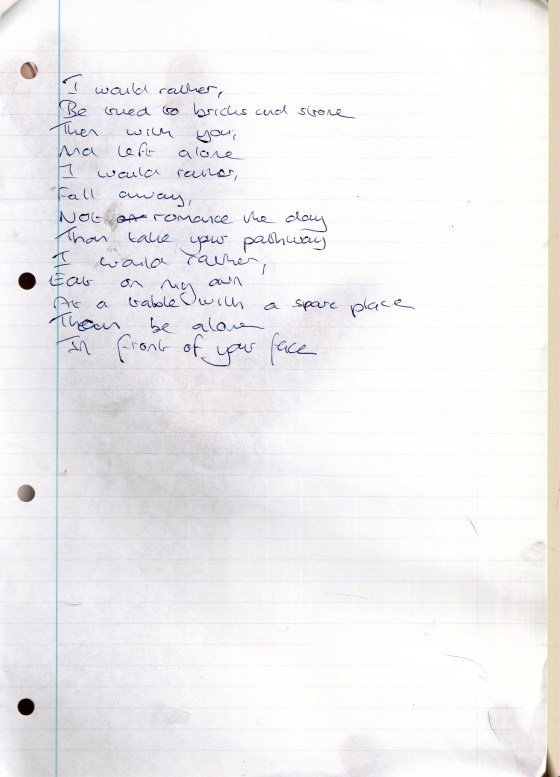 I would rather,
Be tued to bricks and stone
Then with you,
And left alone
I would rather,
Fall away,
Not or romance the day
Than take your pathway
I would rather,
Eat on my own
At a table with a spare place
Than be alone
In front of your face